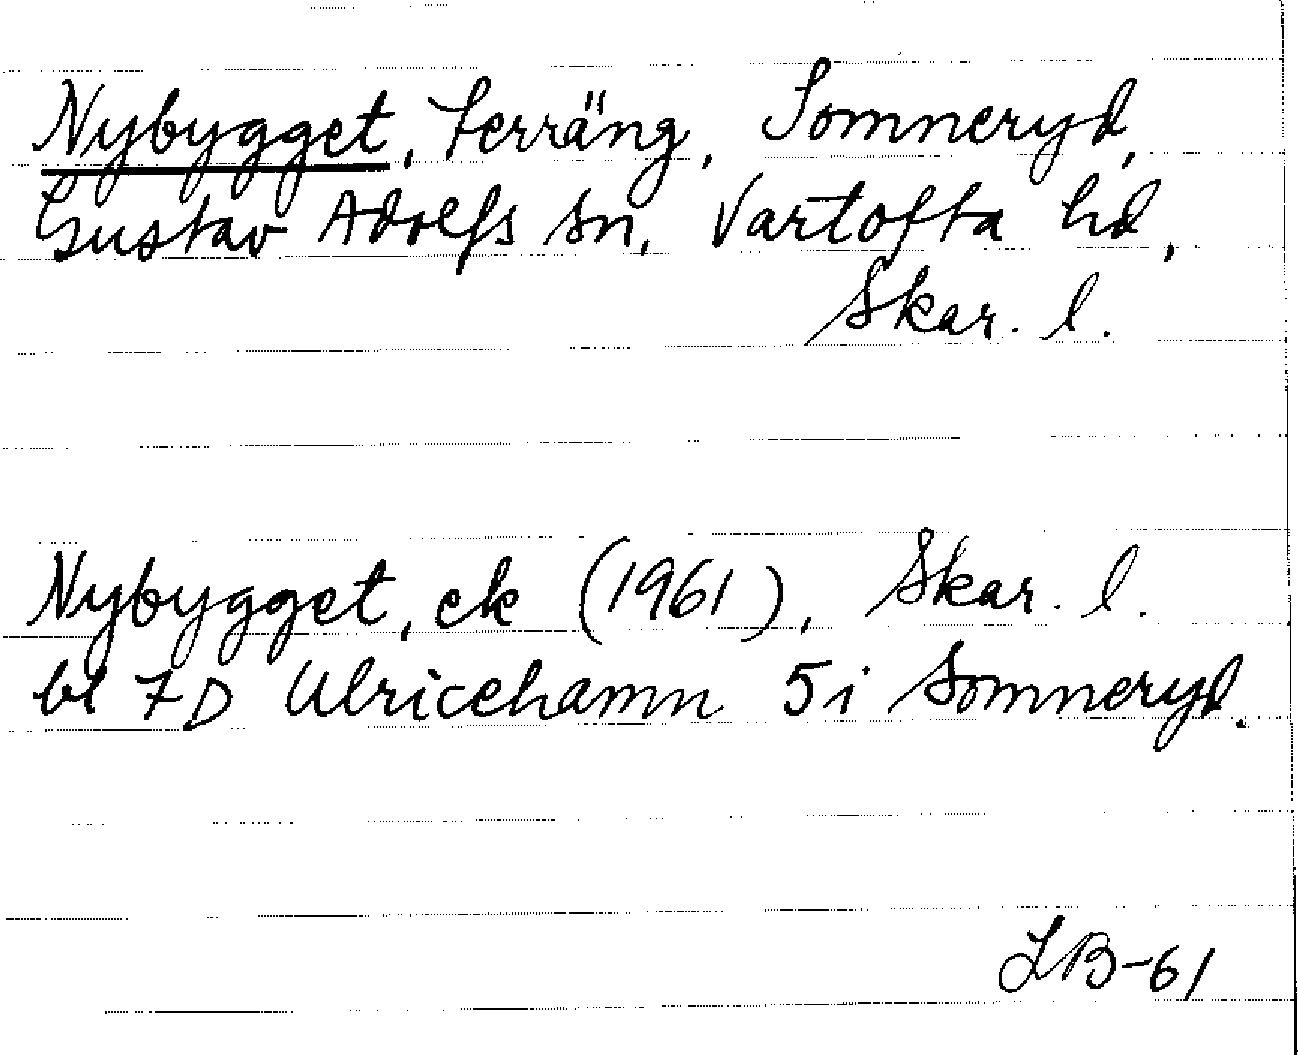 Nybygget, Terräng, Somneryd,
Gustav Adolfs sn, Vartofta hd,
Skar. l.
Nybygget, ek (1961), Skar. l.
bl 7D Ulricehamn 5i Somneryd.
LB-61